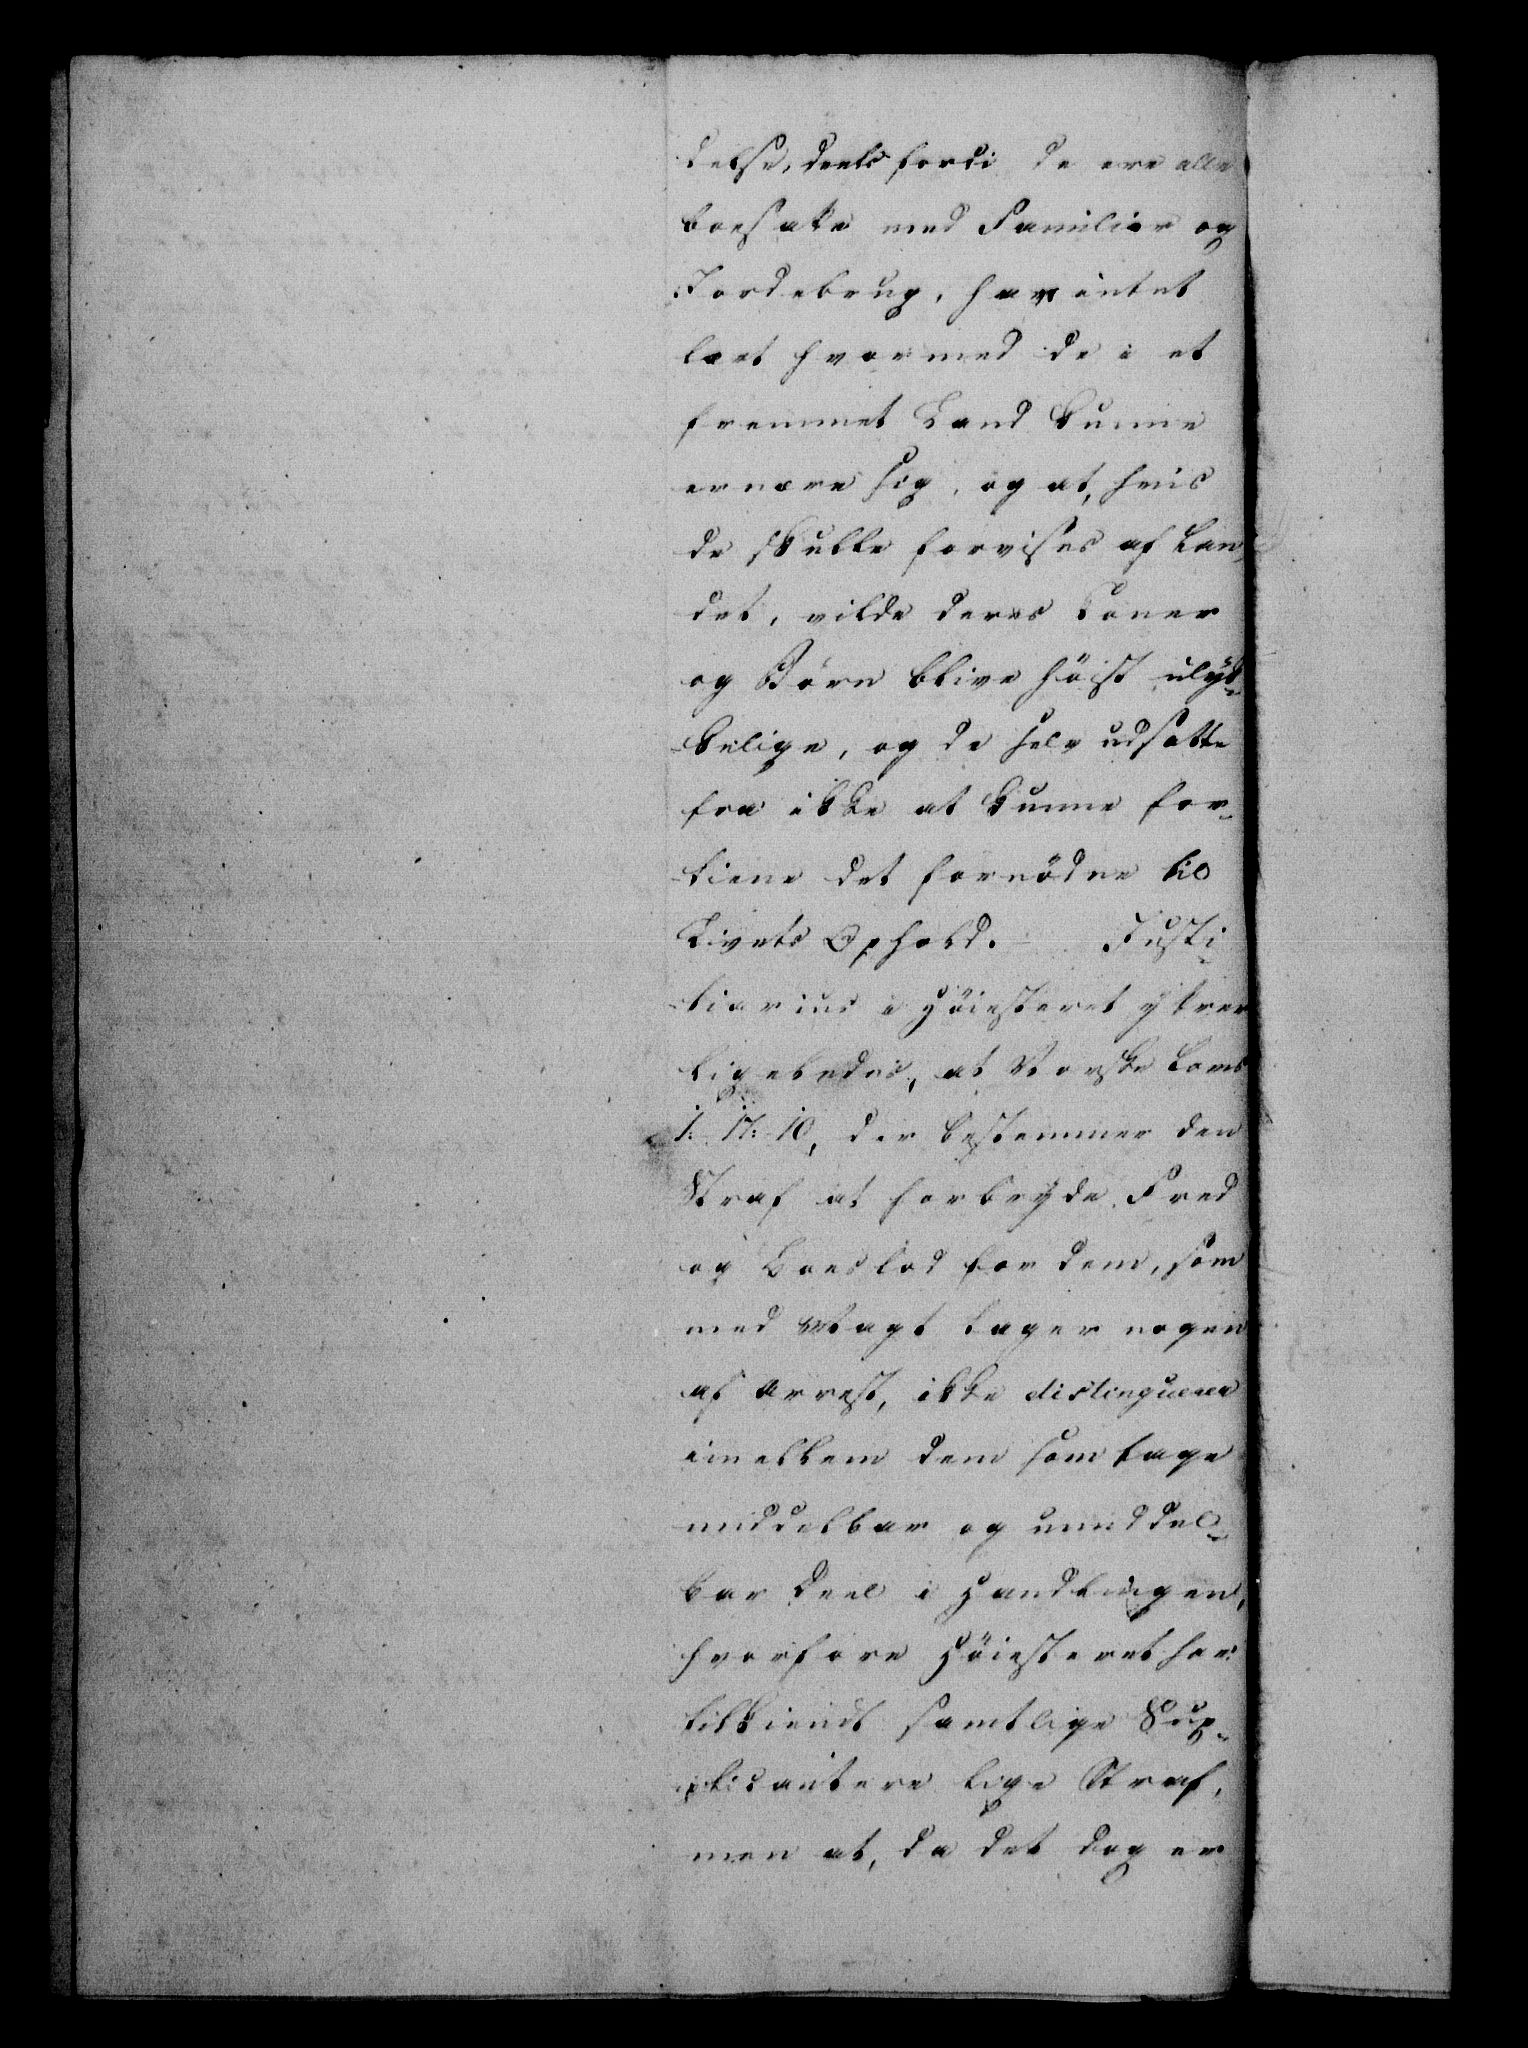 delse, deels fordi de ere alle
boesatte med Familier og
Jordebrug, have intet
lært hvormed de i et
fremmet Land kunne
ernære sig, og at, hvis
de skulle forvises af Lan¬
det, vilde deres Koner
og Börn blive höist ulÿk¬
kelige, og de selv udsatte
fra ikke at kunne for¬
tiene det fornödne til
Livets Ophold. Justi¬
tiarius i Höiesteret ÿtrer
ligeledes, at Norske Lovs
1: 17: 10, der bestemmer den
Straf at forbrÿde Fred
og Boeslod for dem, som
med Magt tager nogen
af Arrest, ikke distinguerer
imellem dem som tage
middelbar og umiddel¬
bar Deel i Handlingen,
hvorfore Höiesteret har
tilkiendt samtlige Sup¬
plicantere lige Straf,
men at, da det dog er